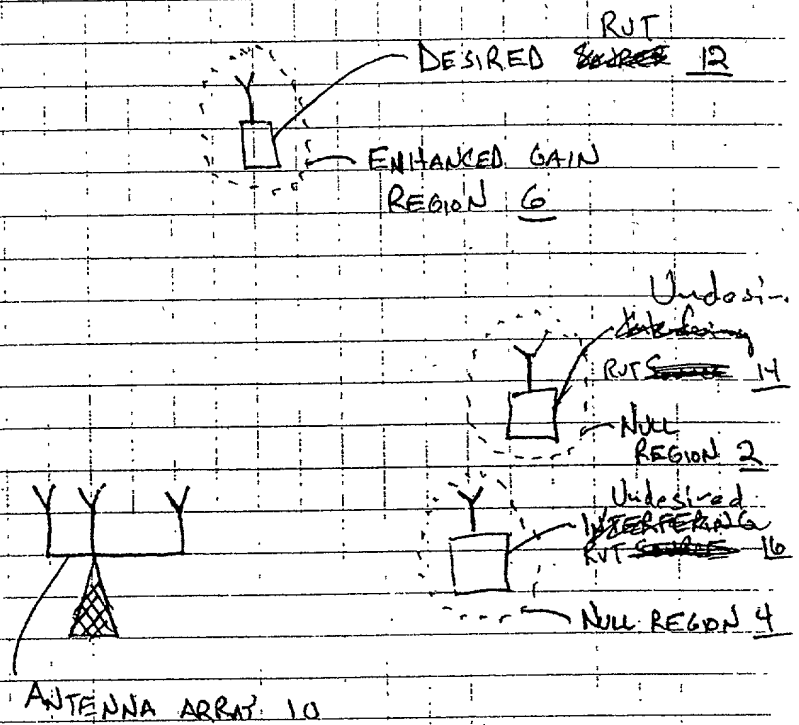 RUT
DESIRED SOURCE 12
ENHANCED GAIN
REGION 6
Undesi-
Interfering
RUT SOURCE 14
NULL
REGION 2
Undesired
INTERFERING
RUT SOURCE 16
NULL REGION 4
ANTENNA ARRAY 10